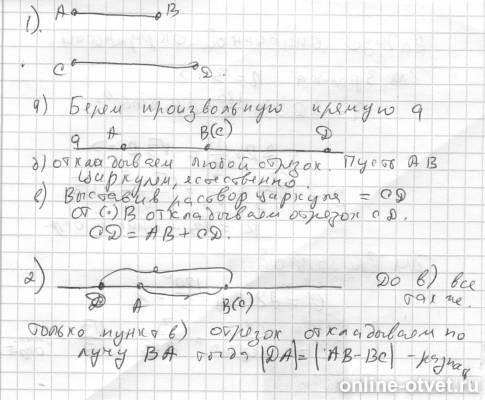 1). A B
C D.
а) Берем произвольную прямую a
a A B(C) D
б) откладываем любой отрезок. Пусть AB
Циркулем, естественно.
в) Выставив раствор циркуля = CD
от (·) B откладываем отрезок CD.
CD = AB + CD.
2) D A B(C) До в) все
так же.
только пункт в) отрезок откладываем по
лучу BA тогда |DA| = |AB-BC| - разнац
online-otvet.ru